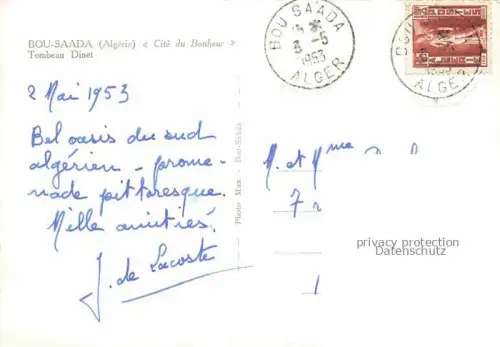 BOU-SAADA (Algérie) « Cité du Bonheur »
Tombeau Dinet
BOU SAADA
3 -5
1953
ALGER
ALGER
2 Mai 1953
Bel oasis du sud
algérien - prome-
nade pittoresque.
Mille amitiés.
J. de Lacoste
Photo Max - Bou-Saâda
M. et Mme
privacy protection
Datenschutz